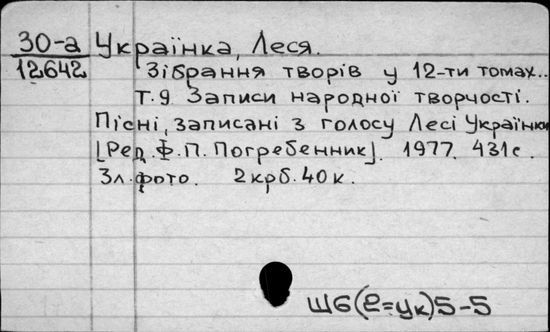 30-а Українка, Леся.
12642 Зібрання творів у 12-ти томах..
Т.9 Записи народної творчості.
Пісні, записані з голосу Лесі Українки
[Ред. Ф.П. Погребенник]. 1977. 431с.
3л.фото. 2крб.40к.
Ш6(2=Ук)5-5